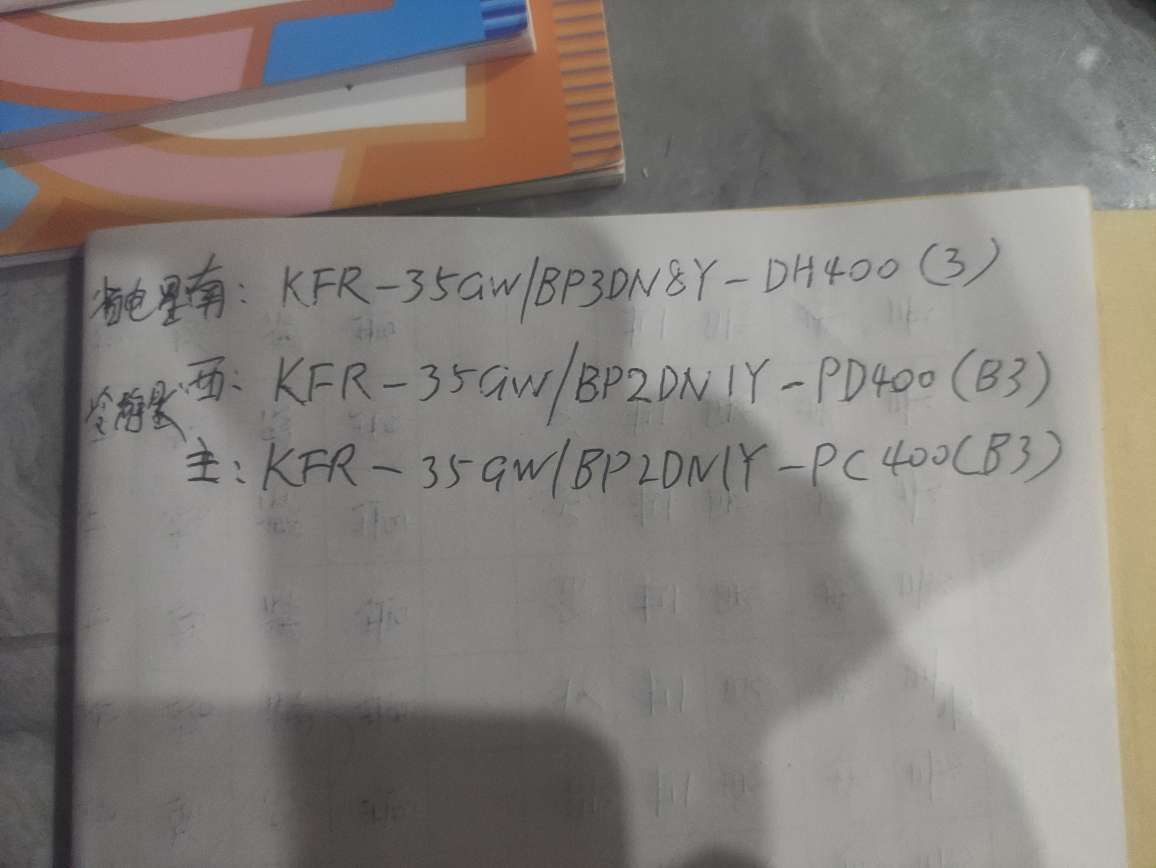 省电星南: KFR-35GW/BP3DN8Y-DH400(3)
西: KFR-35GW/BP2DN1Y-PD400(B3)
冷静星
主: KFR-35GW/BP2DN1Y-PC400(B3)